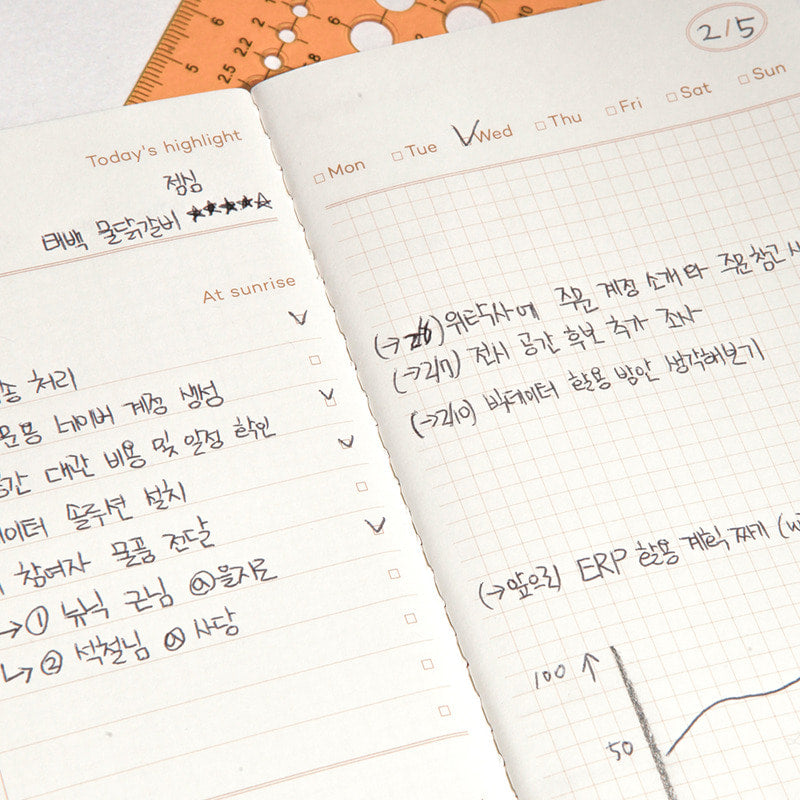 Today's highlight
점심
태백 물닭갈비 ★★★★☆
At sunrise
송 처리
문몽 네이버 계정 생성
공간 대관 비용 및 일정 확인
데이터 솔루션 설치
참여자 물품 전달
→① 뉴식 근님 @을지로
↳② 석철님 @ 사당
2/5
Mon Tue Wed Thu Fri Sat Sun
(→2/6) 위탁사에 주문 계정 소개와 주문 참고
(→2/7) 전시 공간 후보 추가 조사
(→2/10) 빅데이터 활용 방안 생각해보기
(→앞으로 ERP 활용 계획 짜기
100 ↑
50
6 5 2.5 2.2 2 6